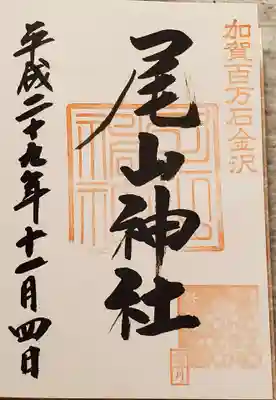 加賀百万石金沢
尾山神社
平成二十九年十一月四日